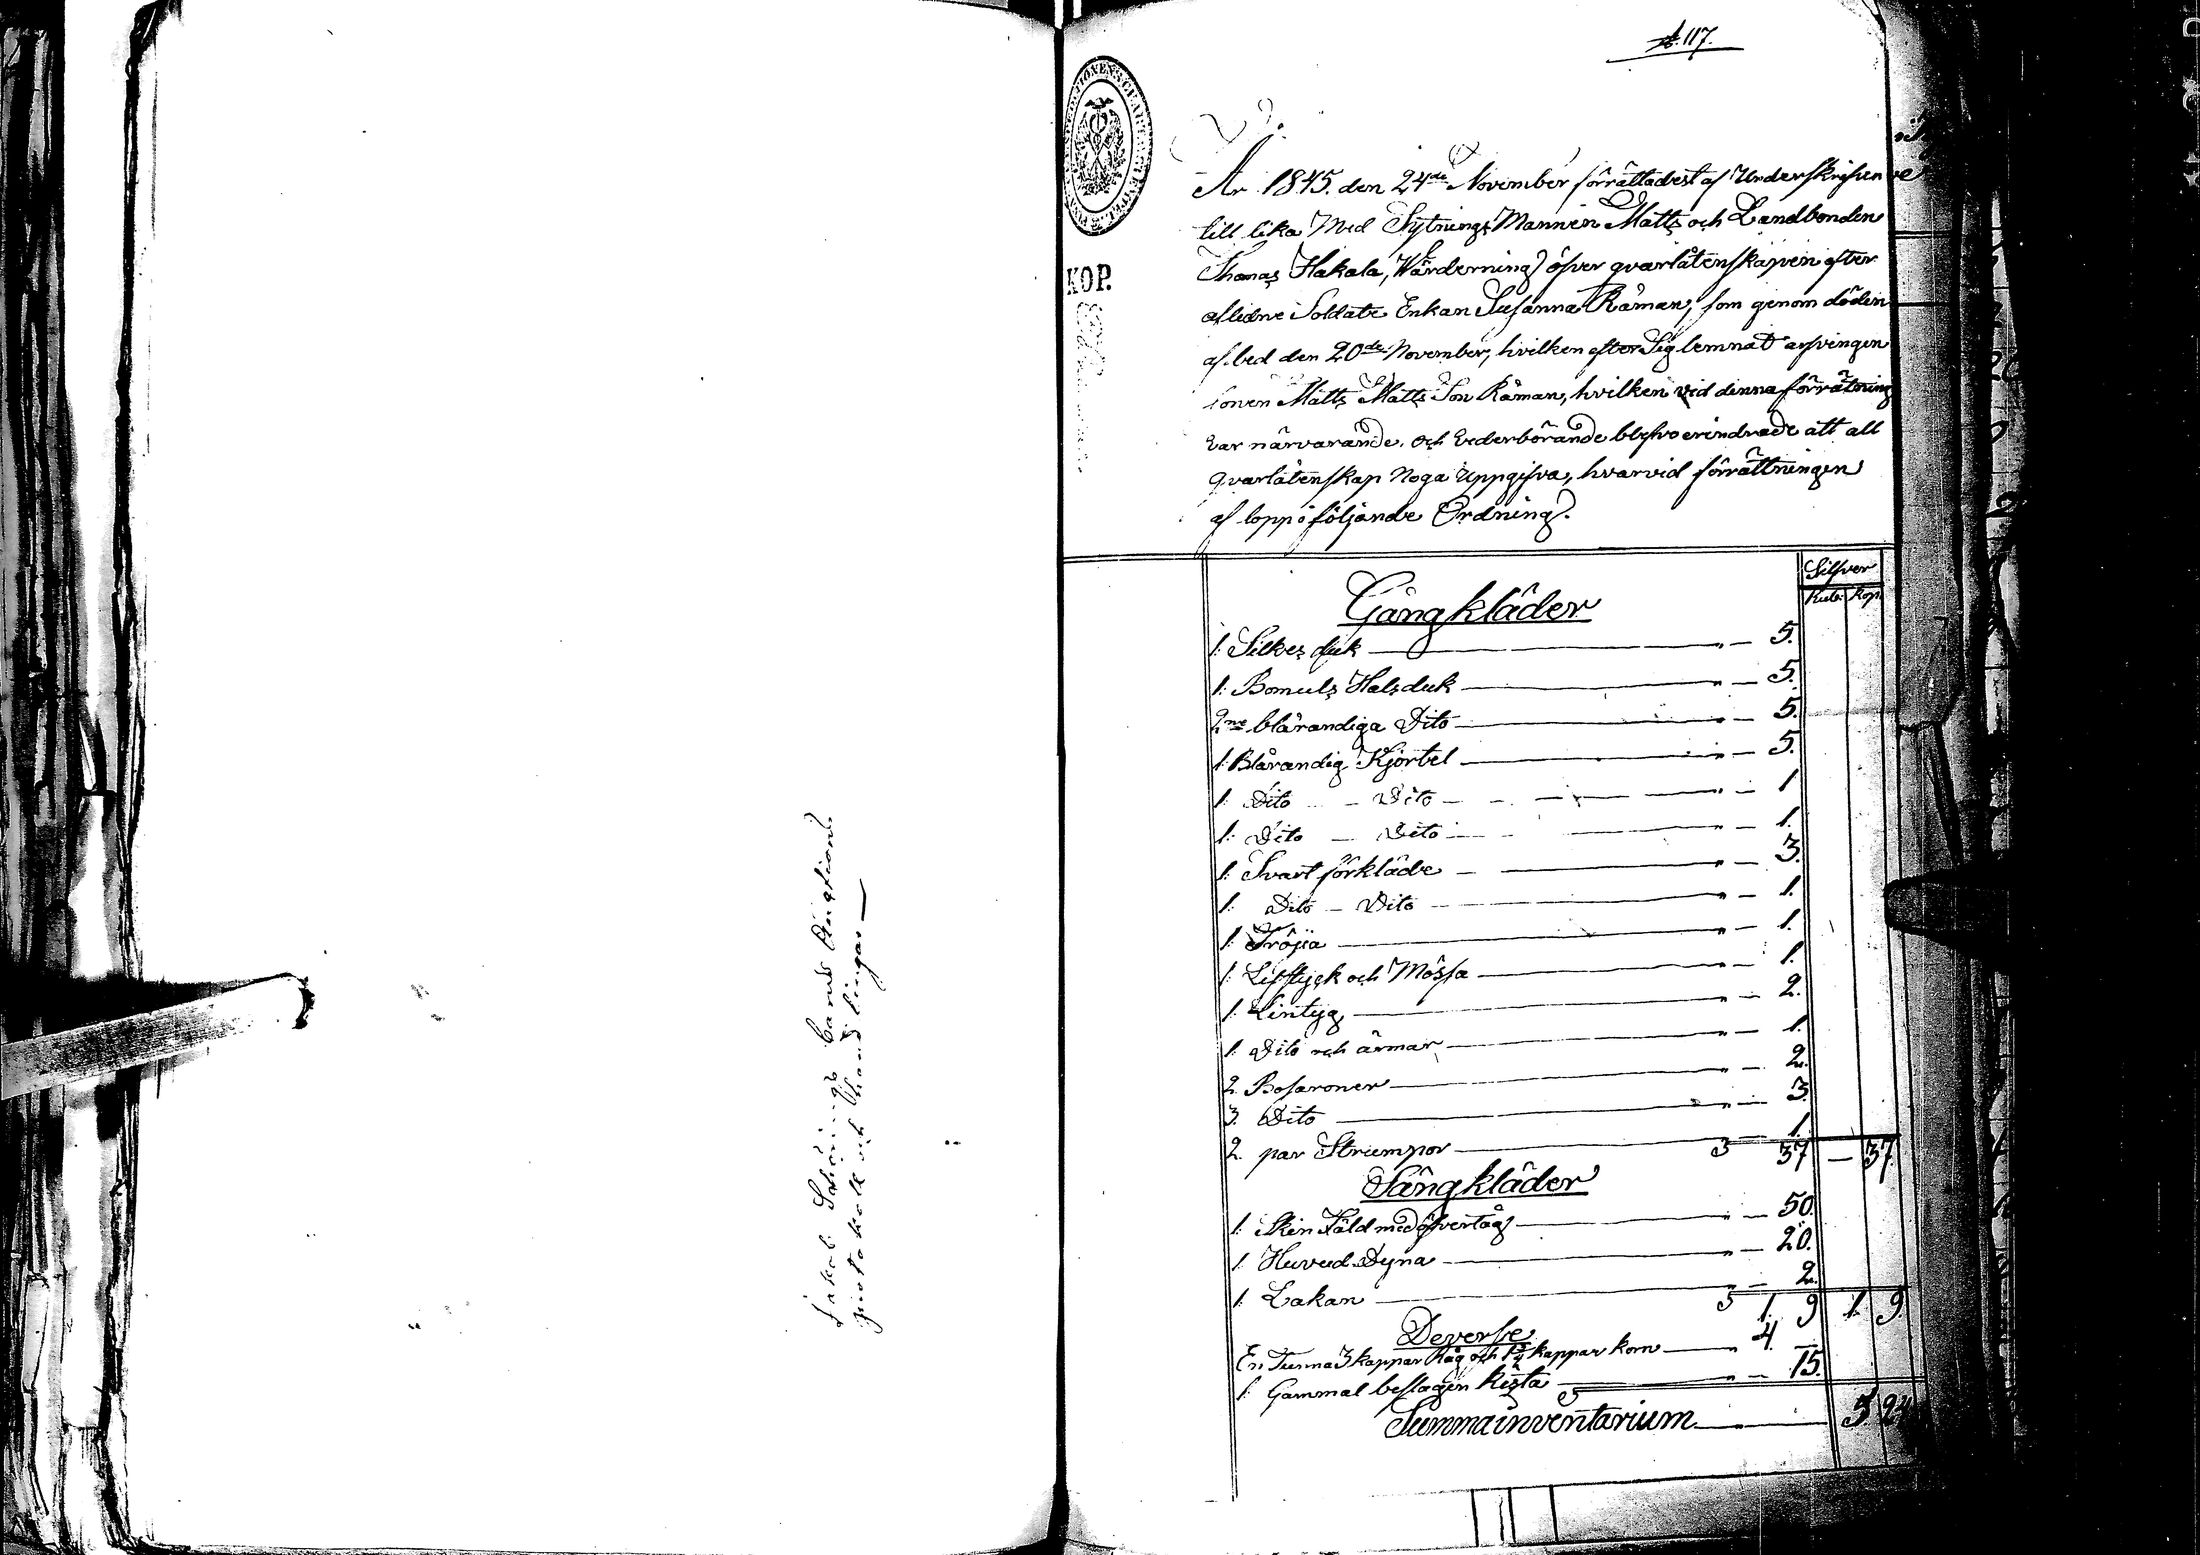 № 117.
KOP.
År 1845. den 24de November förrättadest af Underskrifven
till lika Med Sytnings Mannen Matts och Landbonden
Thomas Hakala, Wärdering öfver qvarlåtenskapen efter
aflidne Soldats Enkan Susanna Råman, som genom döden
afled den 20de November, hvilken efter Sig lemnat arfvingen
sonen Matts Matts Son Råman, hvilken vid denna förrätning
var närvarande. och Vederbörande blefvo erindrade att all
qvarlåtenskap Noga Uppgifva, hvarvid förrättningen
af lopp i följande Ordning.
Silfver
Rub. Kop.
Gångkläder
1: Silkes duk — „ — 5.
1: Bomuls Halsduk — „ — 5.
2ne blårandiga Dito — „ — 5.
1: Blårandig Kjortel — „ — 5.
1: Dito — Dito — „ — 1
1: Dito — Dito — „ — 1.
1: Svart förkläde — „ — 3.
1: Dito — Dito — „ — 1.
1: Tröjia — „ — 1.
1: Lifstyck och Mössa — „ — 1.
1: Lintyg — „ — 2.
1: Dito och ärmar — „ — 1.
2. Bosaroner — „ — 2.
3. Dito — „ — 3
2. par Strumpor — 1.
37 — 37
Sängkläder
1: Skin Fäld med öfvertåg — „ — 50.
1: Huvud Dyna — „ — 20.
1: Lakan — „ — 2.
1. 9 1. 9.
Deverse
En Tunna 3 kappar Råg och kappar korn — 4. —
1: Gammal beslagen kista — „ — 15.
Summa inventarium — 5 24
protokoll och handlingar —